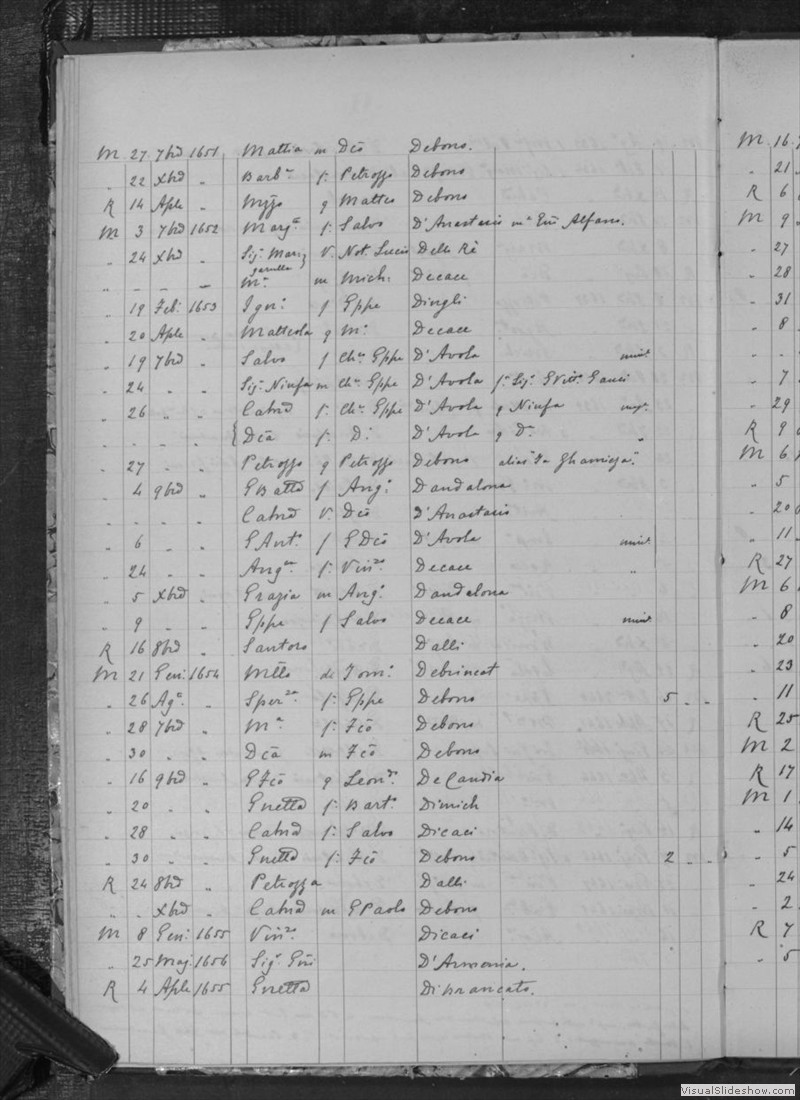 M 27 7bre 1651 Mattia m Dcō Debono.
„ 22 Xbre „ Barbra f: Petroppo Debono
R 14 Aple „ q Matteo Debono
M 3 7bre 1652 Marga f: Salvo D'Anastasio Alfano.
„ 24 Xbre „ Sig: V. Not. Lucio Delle Rè
„ „ „ „ Ma m Mich: Decace
„ 19 Feb: 1653 Igno: f Gppe Dingli
„ 20 Aple „ Matteola q Mo Decace
„ 19 7bre „ Salvo f Cho Gppe D'Avola
„ 24 „ „ Sig: Ninfa m Cho Gppe D'Avola
„ 26 „ „ Catna f: Cho Gppe D'Avola q Ninfa
„ „ „ „ { Dcā f: Do: D'Avola q Da
„ 27 „ „ Petroppo q Petroppo Debono
„ 4 9bre „ GBatta f Ango: Dandalona
„ „ „ „ Catna V: Dcō D'Anastasio
„ 6 „ „ GAnto f GDcō D'Avola
„ 24 „ „ Anga f: Vinzo Decace „
„ 5 Xbre „ Grazia m Ango: Dandalona
„ 9 „ „ Gppe f Salvo Decace
R 16 8bre „ Santoro Dalli
M 21 Gen: 1654 de Tom: Debrincat
„ 26 Ago: „ Sperza f: Gppe Debono 5 „ „
„ 28 7bre „ Ma f: Fcō Debono
„ 30 „ „ Dcā m Fcō Debono
„ 16 9bre „ GFcō q Leondo: DeCandia
„ 20 „ „ Gnetta f: Barto Dimich
„ 28 „ „ Catna f: Salvo Dicaci
„ 30 „ „ Gnetta f: Fcō Debono 2 „ „
R 24 8bre „ Petroppa Dalli
„ „ Xbre „ Catna m GPaolo Debono
M 8 Gen: 1655 Vinzo Dicaci
„ 25 Mag: 1656 Sig: Gio D'Armenia.
R 4 Aple 1655 Gnetta Dibrancato.
M 16
„ 21
R 6
M 9
„ 27
„ 28
„ 31
„ 8
„ „
„ 7
„ 29
R 9
M 6
„ 5
„ 20
„ 11
R 27
M 6
„ 8
„ 20
„ 23
„ 11
R 25
M 2
R 17
M 1
„ 14
„ 5
„ 24
„ 2
R 7
„ 5
VisualSlideshow.com